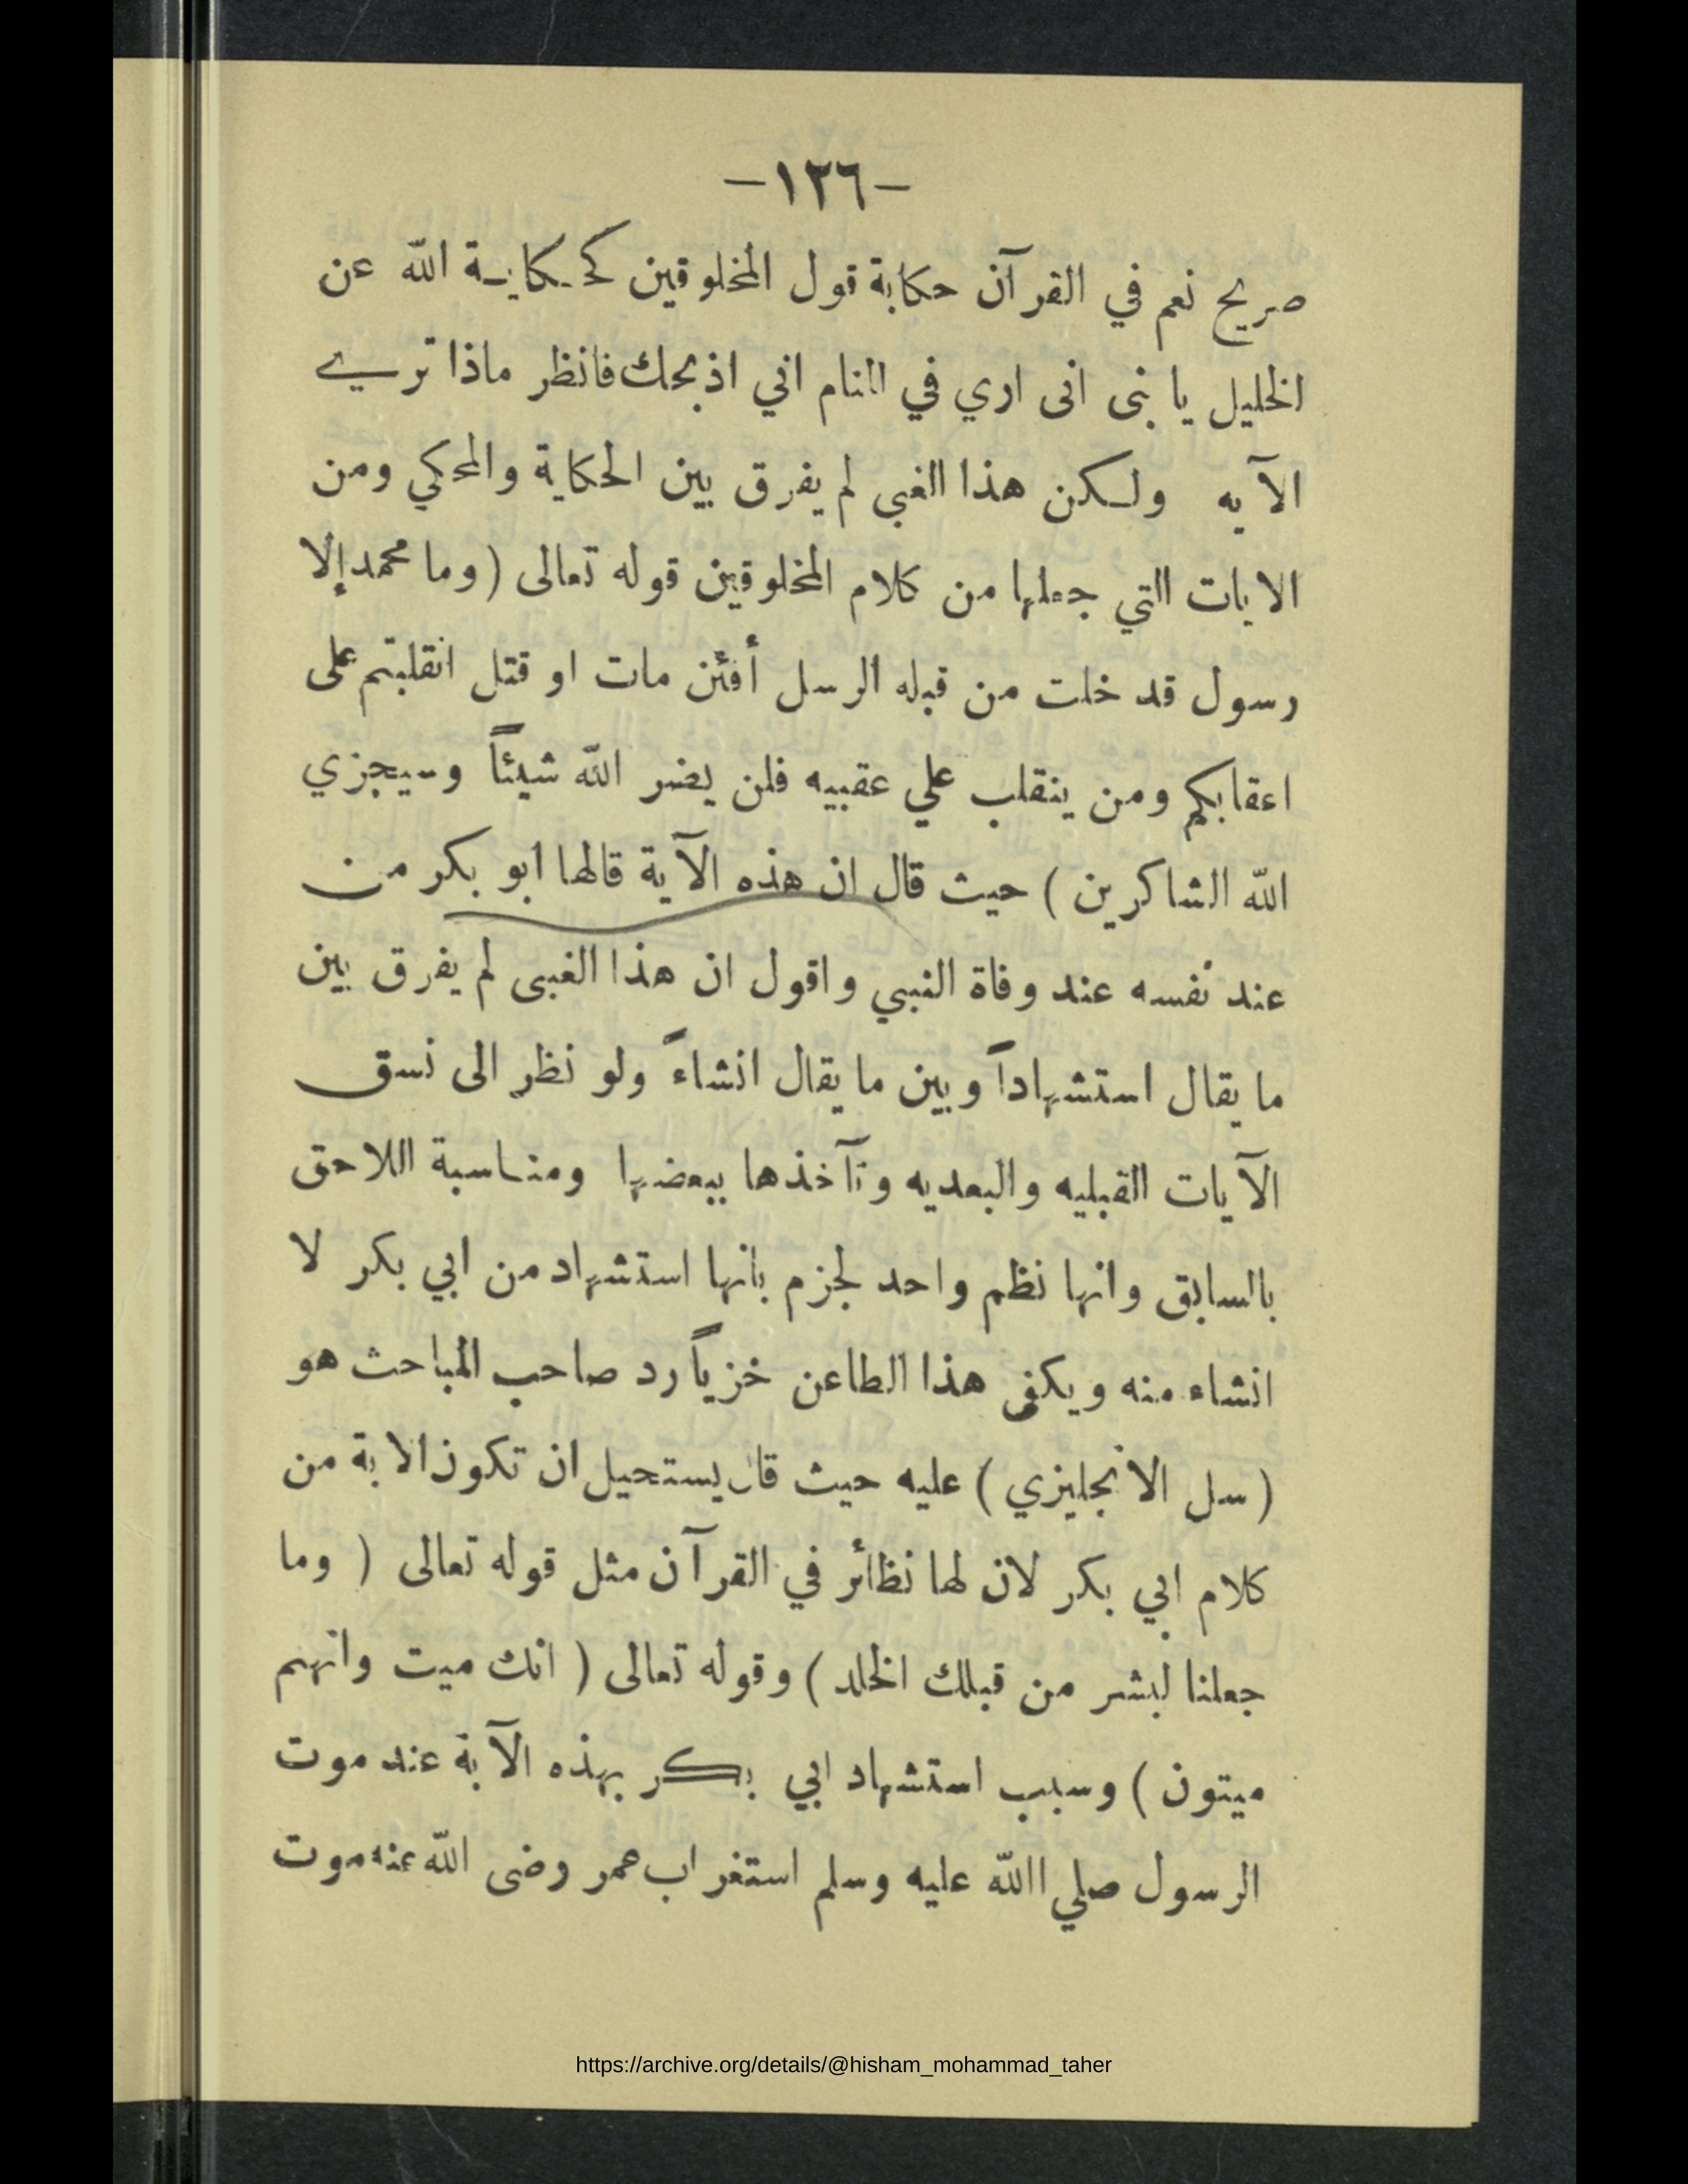 -١٢٦-
صريح نعم في القرآن حكاية قول المخلوقين كحكاية الله عن
الخليل يا بنى انى اري في المنام اني اذبحك فانظر ماذا تري
الآيه ولكن هذا الغبى لم يفرق بين الحكاية والمحكي ومن
الايات التي جعلها من كلام المخلوقين قوله تعالى (وما محمد إلا
رسول قد خلت من قبله الرسل أفئن مات او قتل انقلبتم على
اعقابكم ومن ينقلب علي عقبيه فلن يضر الله شيئاً وسيجزي
الله الشاكرين) حيث قال ان هذه الآية قالها ابو بكر من
عند نفسه عند وفاة النبي واقول ان هذا الغبى لم يفرق بين
ما يقال استشهاداً وبين ما يقال انشاءً ولو نظر الى نسق
الآيات القبليه والبعديه وتآخذها ببعضها ومناسبة اللاحق
بالسابق وانها نظم واحد لجزم بانها استشهاد من ابي بكر لا
انشاء منه ويكفى هذا الطاعن خزياً رد صاحب المباحث هو
(سل الانجليزي) عليه حيث قال يستحيل ان تكون الاية من
كلام ابي بكر لان لها نظائر في القرآن مثل قوله تعالى (وما
جعلنا لبشر من قبلك الخلد) وقوله تعالى (انك ميت وانهم
ميتون) وسبب استشهاد ابي بكر بهذه الآية عند موت
الرسول صلي االله عليه وسلم استغراب عمر رضى الله عنه موت
https://archive.org/details/@hisham_mohammad_taher